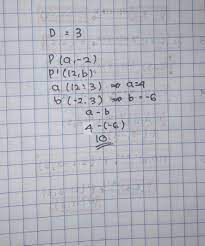 D = 3
P (a, -2)
P' (12, b)
a (12 : 3) ⇒ a=4
b (-2.3) ⇒ b = -6
a - b
4 - (-6)
10